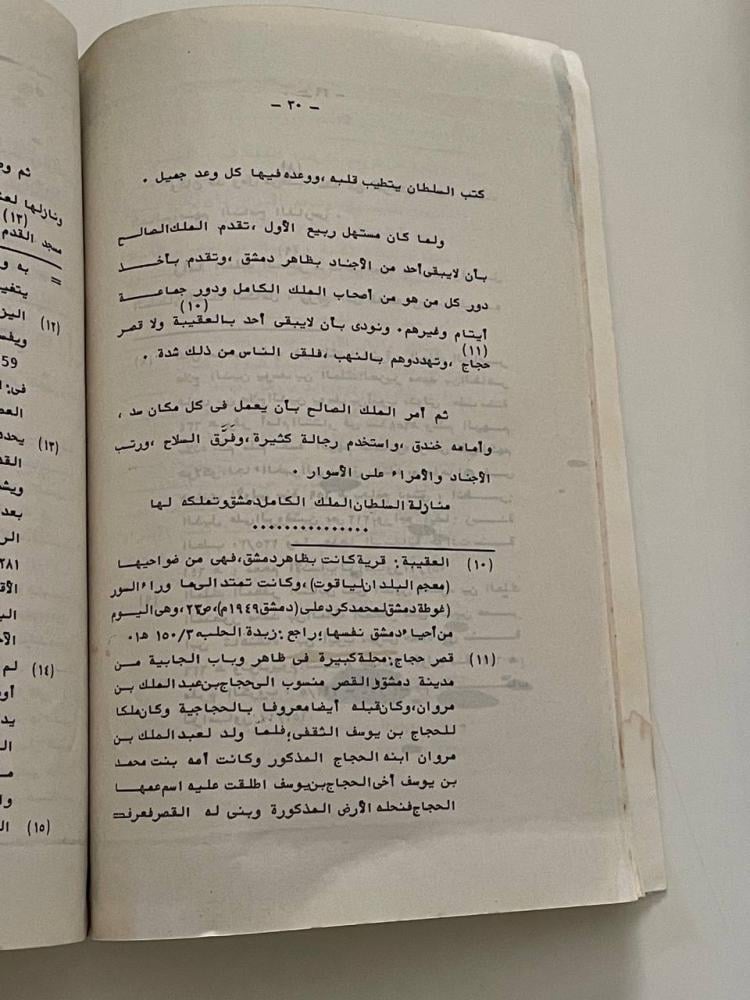 - ٣٠ -
كتب السلطان يتطيب قلبه ،ووعده فيها كل وعد جميل .
ولما كان مستهل ربيع الأول ،تقدم الملك الصالح
بأن لايبقى أحد من الأجناد بظاهر دمشق ،وتقدم بأخذ
دور كل من هو من أصحاب الملك الكامل ودور جماعة
أيتام وغيرهم. ونودى بأن لايبقى أحد بالعقيبة (١٠) ولا قصر
حجاج (١١) ،وتهددوهم بالنهب ،فلقى الناس من ذلك شدة .
ثم أمر الملك الصالح بأن يعمل فى كل مكان سد ،
وأمامه خندق ،واستخدم رجالة كثيرة ،وفَرَّق السلاح ،ورتب
الأجناد والأمراء على الأسوار .
منازلة السلطان الملك الكامل دمشق وتملكه لها
...............
(١٠) العقيبة: قرية كانت بظاهر دمشق،فهى من ضواحيها
(معجم البلدان لياقوت)،وكانت تمتد الى ما وراء السور
(غوطة دمشق لمحمد كرد على (دمشق ١٩٤٩م)،ص٢٣،وهى اليوم
من أحياء دمشق نفسها؛ راجع: زبدة الحلب ١٥٠/٣ ه١.
(١١) قصر حجاج: محلة كبيرة فى ظاهر وباب الجابية من
مدينة دمشق والقصر منسوب الى حجاج بن عبد الملك بن
مروان،وكان قبله أيضا معروفا بالحجاجية وكان ملكا
للحجاج بن يوسف الثقفى؛فلما ولد لعبد الملك بن
مروان ابنه الحجاج المذكور وكانت أمه بنت محمد
بن يوسف أخى الحجاج بن يوسف اطلقت عليه اسم عمها
الحجاج فنحله الأرض المذكورة وبنى له القصر فعرف=
ثم
ونازلها
(١٣)
مسجد القدم
= به
(١٢)
59
فى:
(١٣)
بعد
(١٤) لم
(١٥)